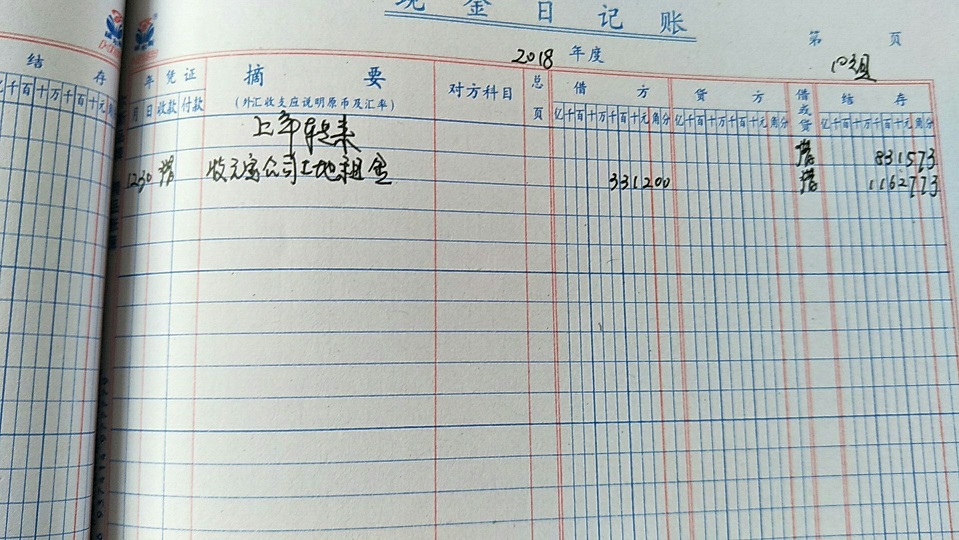 现金日记账
2018 年度
第 页
口组
结 存
亿千百十万千百十元
年 凭证 摘 要 对方科目 总页 借 方 贷 方 借或贷 结 存
月 日 收款 付款 (外汇收支应说明原币及汇率) 亿千百十万千百十元角分 亿千百十万千百十元角分 亿千百十万千百十元角分
上年转来 借 831573
12 30 借 收元宝公司土地租金 331200 借 1162773